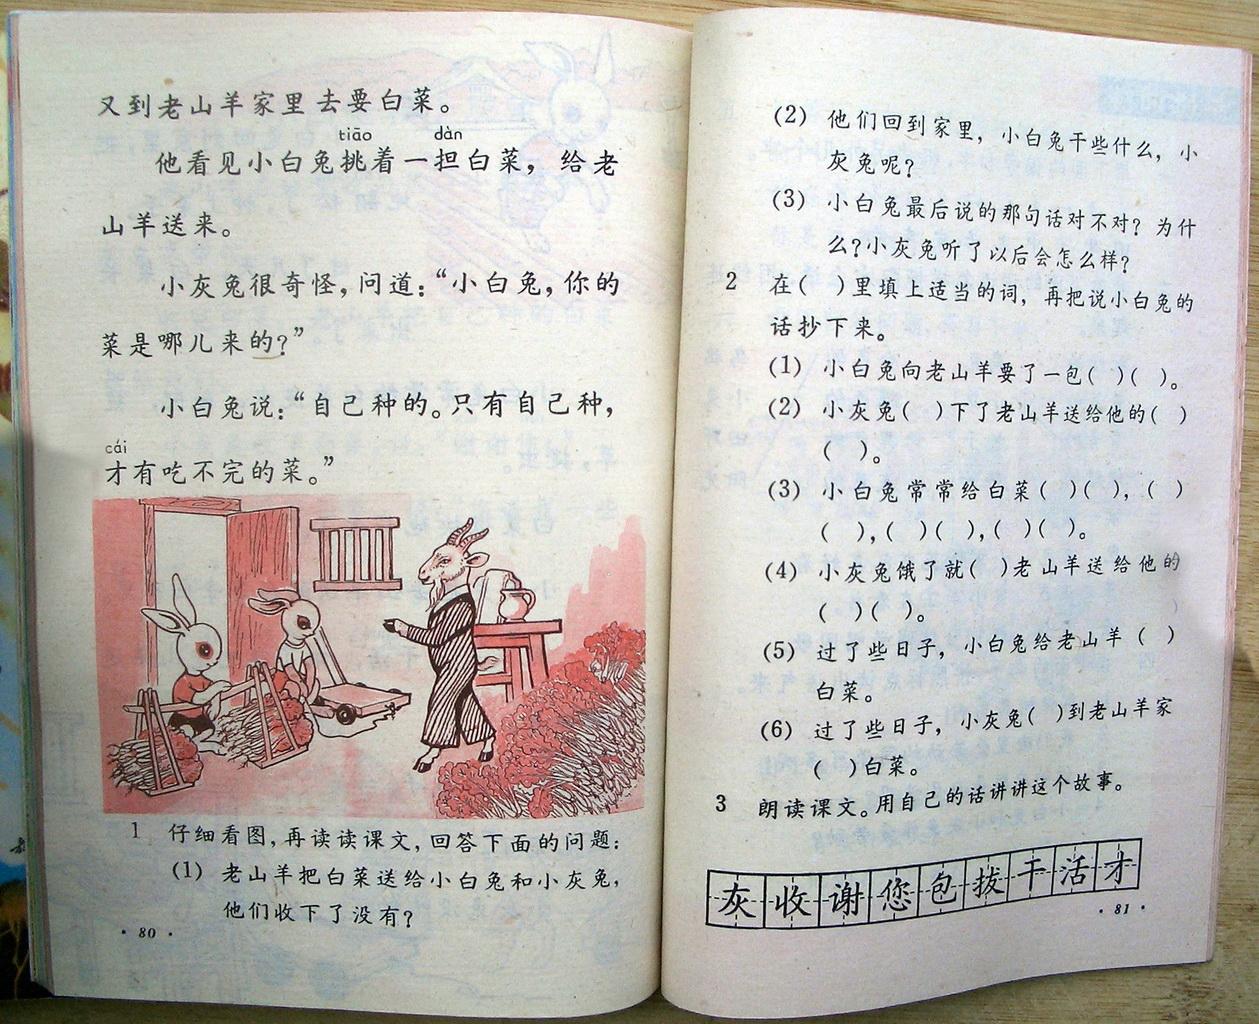 又到老山羊家里去要白菜。
tiāo dàn
他看见小白兔挑着一担白菜，给老
山羊送来。
小灰兔很奇怪，问道：“小白兔，你的
菜是哪儿来的？”
小白兔说：“自己种的。只有自己种，
cái
才有吃不完的菜。”
1 仔细看图，再读读课文，回答下面的问题：
(1) 老山羊把白菜送给小白兔和小灰兔，
他们收下了没有？
· 80 ·
(2) 他们回到家里，小白兔干些什么，小
灰兔呢？
(3) 小白兔最后说的那句话对不对？为什
么？小灰兔听了以后会怎么样？
2 在( )里填上适当的词，再把说小白兔的
话抄下来。
(1) 小白兔向老山羊要了一包( )( )。
(2) 小灰兔( )下了老山羊送给他的( )
( )。
(3) 小白兔常常给白菜( )( )，( )
( )，( )( )，( )( )。
(4) 小灰兔饿了就( )老山羊送给他的
( )( )。
(5) 过了些日子，小白兔给老山羊( )
白菜。
(6) 过了些日子，小灰兔( )到老山羊家
( )白菜。
3 朗读课文。用自己的话讲讲这个故事。
灰收谢您包拔干活才
· 81 ·